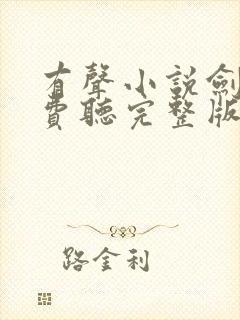 有聲小說劍
費聽完整版
路金利